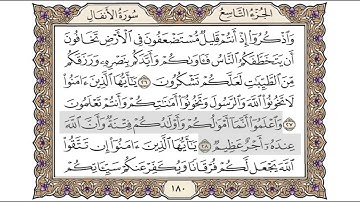 الجزء التاسع سورة الأنفال
وَاذْكُرُوا إِذْ أَنتُمْ قَلِيلٌ مُّسْتَضْعَفُونَ فِي الْأَرْضِ تَخَافُونَ
أَن يَتَخَطَّفَكُمُ النَّاسُ فَآوَاكُمْ وَأَيَّدَكُم بِنَصْرِهِ وَرَزَقَكُم
مِّنَ الطَّيِّبَاتِ لَعَلَّكُمْ تَشْكُرُونَ ٢٦ يَا أَيُّهَا الَّذِينَ آمَنُوا
لَا تَخُونُوا اللَّهَ وَالرَّسُولَ وَتَخُونُوا أَمَانَاتِكُمْ وَأَنتُمْ تَعْلَمُونَ
٢٧ وَاعْلَمُوا أَنَّمَا أَمْوَالُكُمْ وَأَوْلَادُكُمْ فِتْنَةٌ وَأَنَّ اللَّهَ
عِندَهُ أَجْرٌ عَظِيمٌ ٢٨ يَا أَيُّهَا الَّذِينَ آمَنُوا إِن تَتَّقُوا
اللَّهَ يَجْعَل لَّكُمْ فُرْقَانًا وَيُكَفِّرْ عَنكُمْ سَيِّئَاتِكُمْ
١٨٠